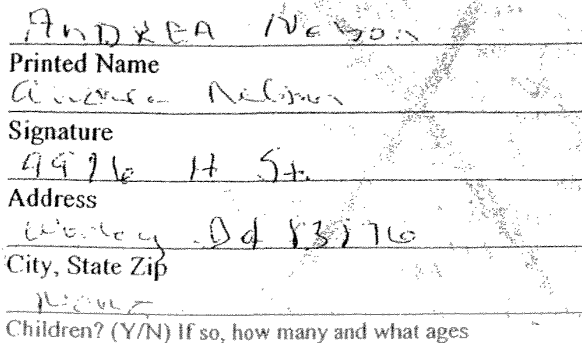 ANDREA Nelson
Printed Name
Andrea Nelson
Signature
H St.
Address
Worley Id
City, State Zip
None
Children? (Y/N) If so, how many and what ages